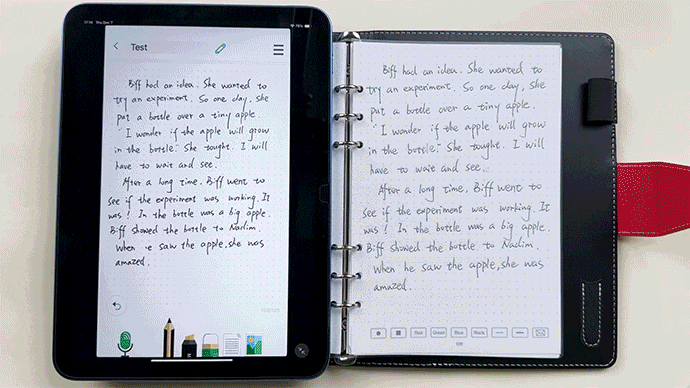 Test
Biff had an idea. She wanted to
try an experiment. So one day, she
put a bottle over a tiny apple.
"I wonder if the apple will grow
in the bottle." She tought. I will
have to wait and see.
After a long time, Biff went to
see if the experiment was working. It
was! In the bottle was a big apple.
Biff showed the bottle to Nadim.
When he saw the apple, she was
amazed.
Biff had an idea. She wanted to
try an experiment. So one day, she
put a bottle over a tiny apple.
"I wonder if the apple will grow
in the bottle." She tought. I will
have to wait and see.
After a long time, Biff went to
see if the experiment was working. It
was! In the bottle was a big apple.
Biff showed the bottle to Nadim.
When he saw the apple, she was
amazed.
Red Green Blue Black